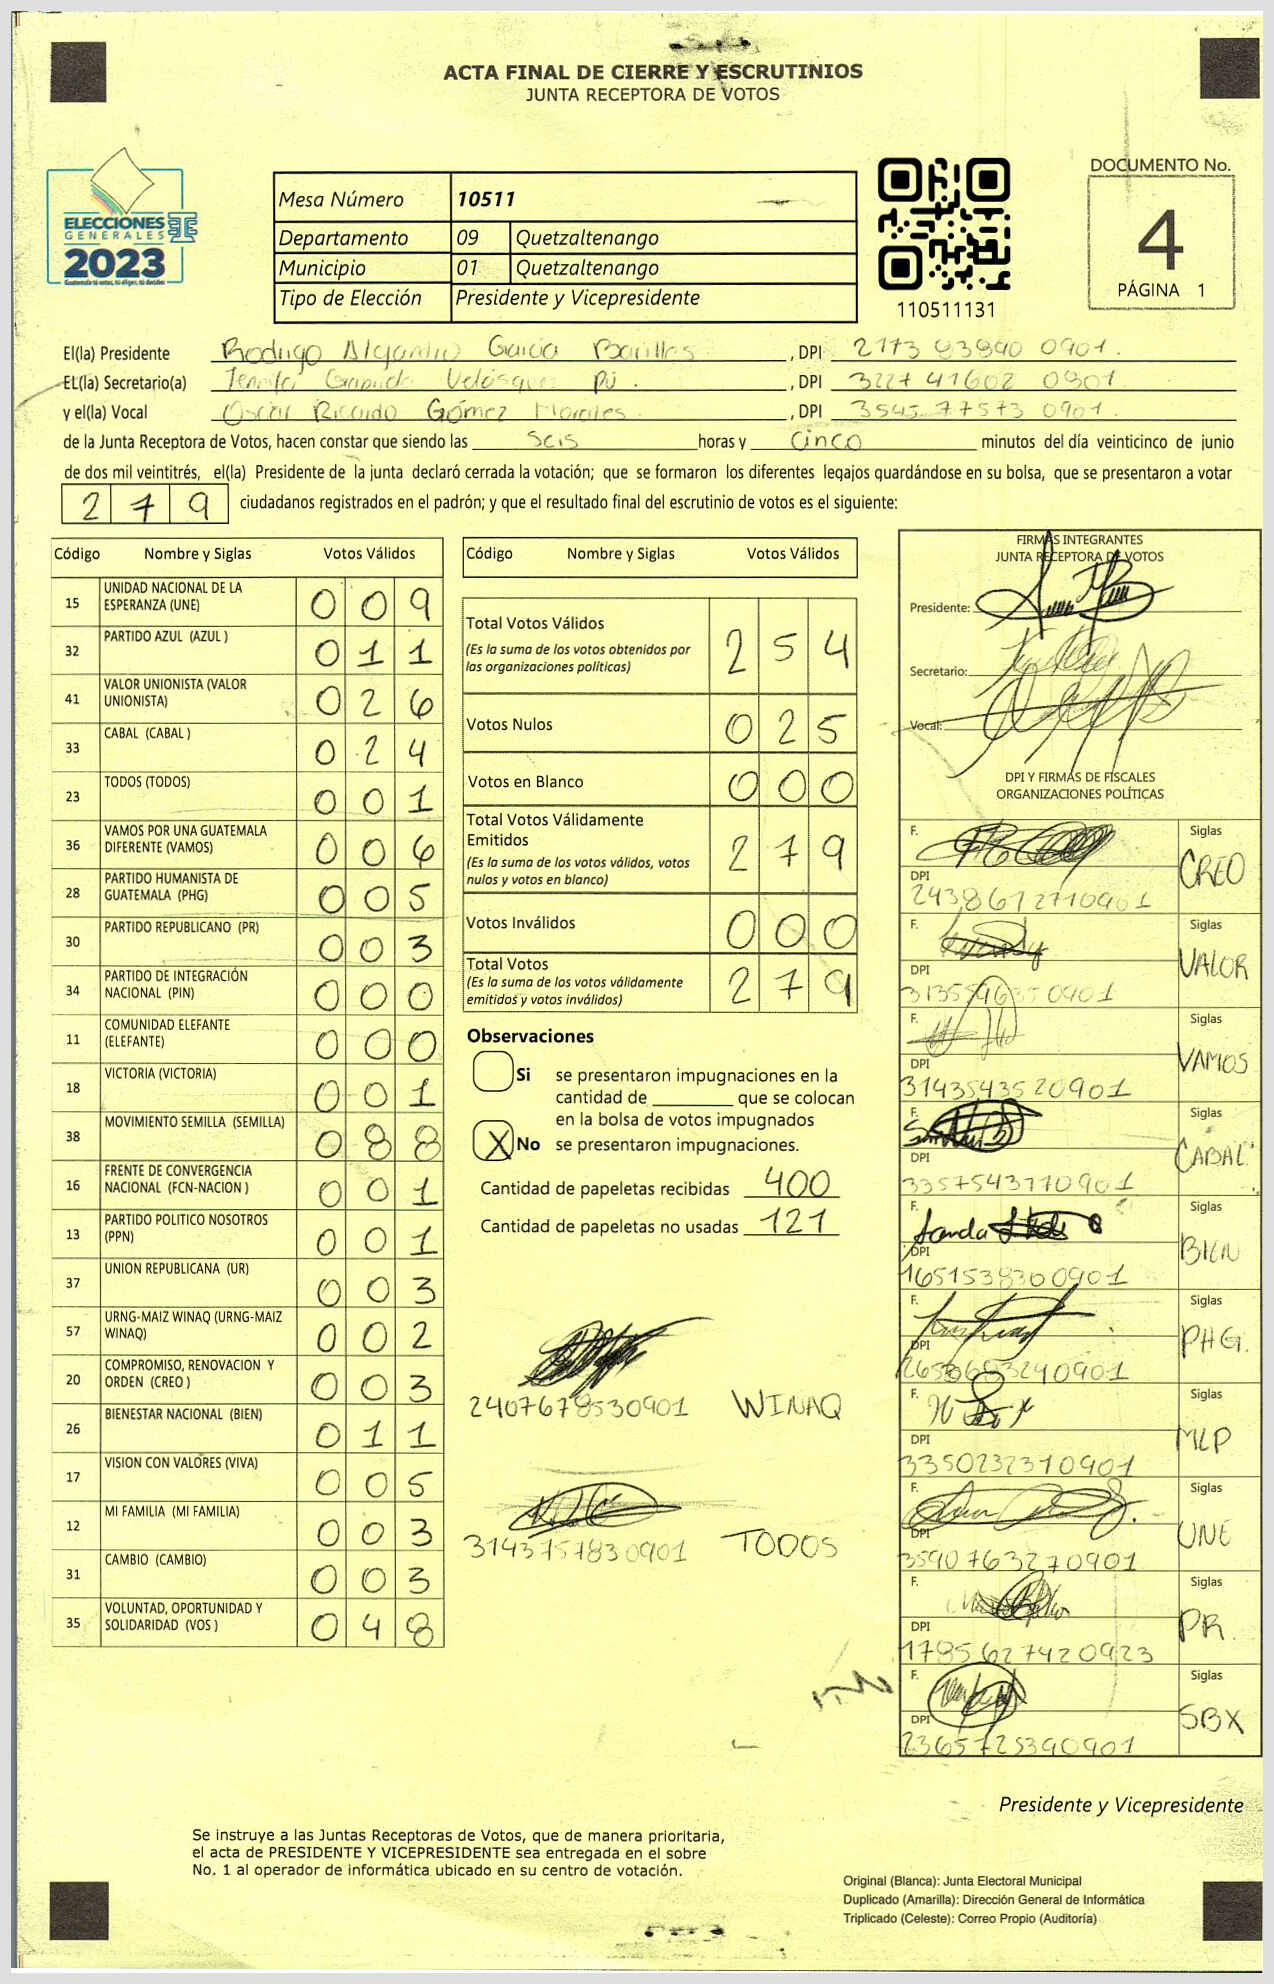 ACTA FINAL DE CIERRE Y ESCRUTINIOS
JUNTA RECEPTORA DE VOTOS
ELECCIONES
GENERALES
2023
Guatemala tú votas, tú eliges, tú decides
Mesa Número 10511
Departamento 09 Quetzaltenango
Municipio 01 Quetzaltenango
Tipo de Elección Presidente y Vicepresidente
110511131
DOCUMENTO No.
4
PÁGINA 1
El(la) Presidente Rodrigo Garcia Barillas , DPI 2173 83890 0901.
EL(la) Secretario(a) Velásquez Pú . , DPI 3227 41602 0901
y el(la) Vocal Oscar Ricardo Gómez Morales , DPI 3545 77573 0901.
de la Junta Receptora de Votos, hacen constar que siendo las seis horas y cinco minutos del día veinticinco de junio
de dos mil veintitrés, el(la) Presidente de la junta declaró cerrada la votación; que se formaron los diferentes legajos guardándose en su bolsa, que se presentaron a votar
279 ciudadanos registrados en el padrón; y que el resultado final del escrutinio de votos es el siguiente:
Código Nombre y Siglas Votos Válidos
15 UNIDAD NACIONAL DE LA ESPERANZA (UNE) 009
32 PARTIDO AZUL (AZUL ) 011
41 VALOR UNIONISTA (VALOR UNIONISTA) 026
33 CABAL (CABAL ) 024
23 TODOS (TODOS) 001
36 VAMOS POR UNA GUATEMALA DIFERENTE (VAMOS) 006
28 PARTIDO HUMANISTA DE GUATEMALA (PHG) 005
30 PARTIDO REPUBLICANO (PR) 003
34 PARTIDO DE INTEGRACIÓN NACIONAL (PIN) 000
11 COMUNIDAD ELEFANTE (ELEFANTE) 000
18 VICTORIA (VICTORIA) 001
38 MOVIMIENTO SEMILLA (SEMILLA) 088
16 FRENTE DE CONVERGENCIA NACIONAL (FCN-NACION ) 001
13 PARTIDO POLITICO NOSOTROS (PPN) 001
37 UNION REPUBLICANA (UR) 003
57 URNG-MAIZ WINAQ (URNG-MAIZ WINAQ) 002
20 COMPROMISO, RENOVACION Y ORDEN (CREO ) 003
26 BIENESTAR NACIONAL (BIEN) 011
17 VISION CON VALORES (VIVA) 005
12 MI FAMILIA (MI FAMILIA) 003
31 CAMBIO (CAMBIO) 003
35 VOLUNTAD, OPORTUNIDAD Y SOLIDARIDAD (VOS ) 048
Código Nombre y Siglas Votos Válidos
Total Votos Válidos 254
(Es la suma de los votos obtenidos por las organizaciones políticas)
Votos Nulos 025
Votos en Blanco 000
Total Votos Válidamente Emitidos 279
(Es la suma de los votos válidos, votos nulos y votos en blanco)
Votos Inválidos 000
Total Votos 279
(Es la suma de los votos válidamente emitidos y votos inválidos)
Observaciones
Si se presentaron impugnaciones en la
cantidad de ________ que se colocan
en la bolsa de votos impugnados
X No se presentaron impugnaciones.
Cantidad de papeletas recibidas 400
Cantidad de papeletas no usadas 121
2407678530901 WINAQ
3143757830901 TODOS
FIRMAS INTEGRANTES
JUNTA RECEPTORA DE VOTOS
Presidente:
Secretario:
Vocal:
DPI Y FIRMAS DE FISCALES
ORGANIZACIONES POLÍTICAS
F. Siglas CREO
DPI 2438672710901
F. Siglas VALOR
DPI
F. Siglas VAMOS
DPI 3143543520901
F. Siglas CABAL
DPI 3357543770901
F. Siglas BIEN
DPI 1651538360901
F. Siglas PHG.
DPI
F. Siglas MLP
DPI 3350232310901
F. Siglas UNE
DPI 3590763270901
F. Siglas PR.
DPI 1785627420923
F. Siglas SBX
DPI 2365725390901
Presidente y Vicepresidente
Se instruye a las Juntas Receptoras de Votos, que de manera prioritaria,
el acta de PRESIDENTE Y VICEPRESIDENTE sea entregada en el sobre
No. 1 al operador de informática ubicado en su centro de votación.
Original (Blanca): Junta Electoral Municipal
Duplicado (Amarilla): Dirección General de Informática
Triplicado (Celeste): Correo Propio (Auditoría)